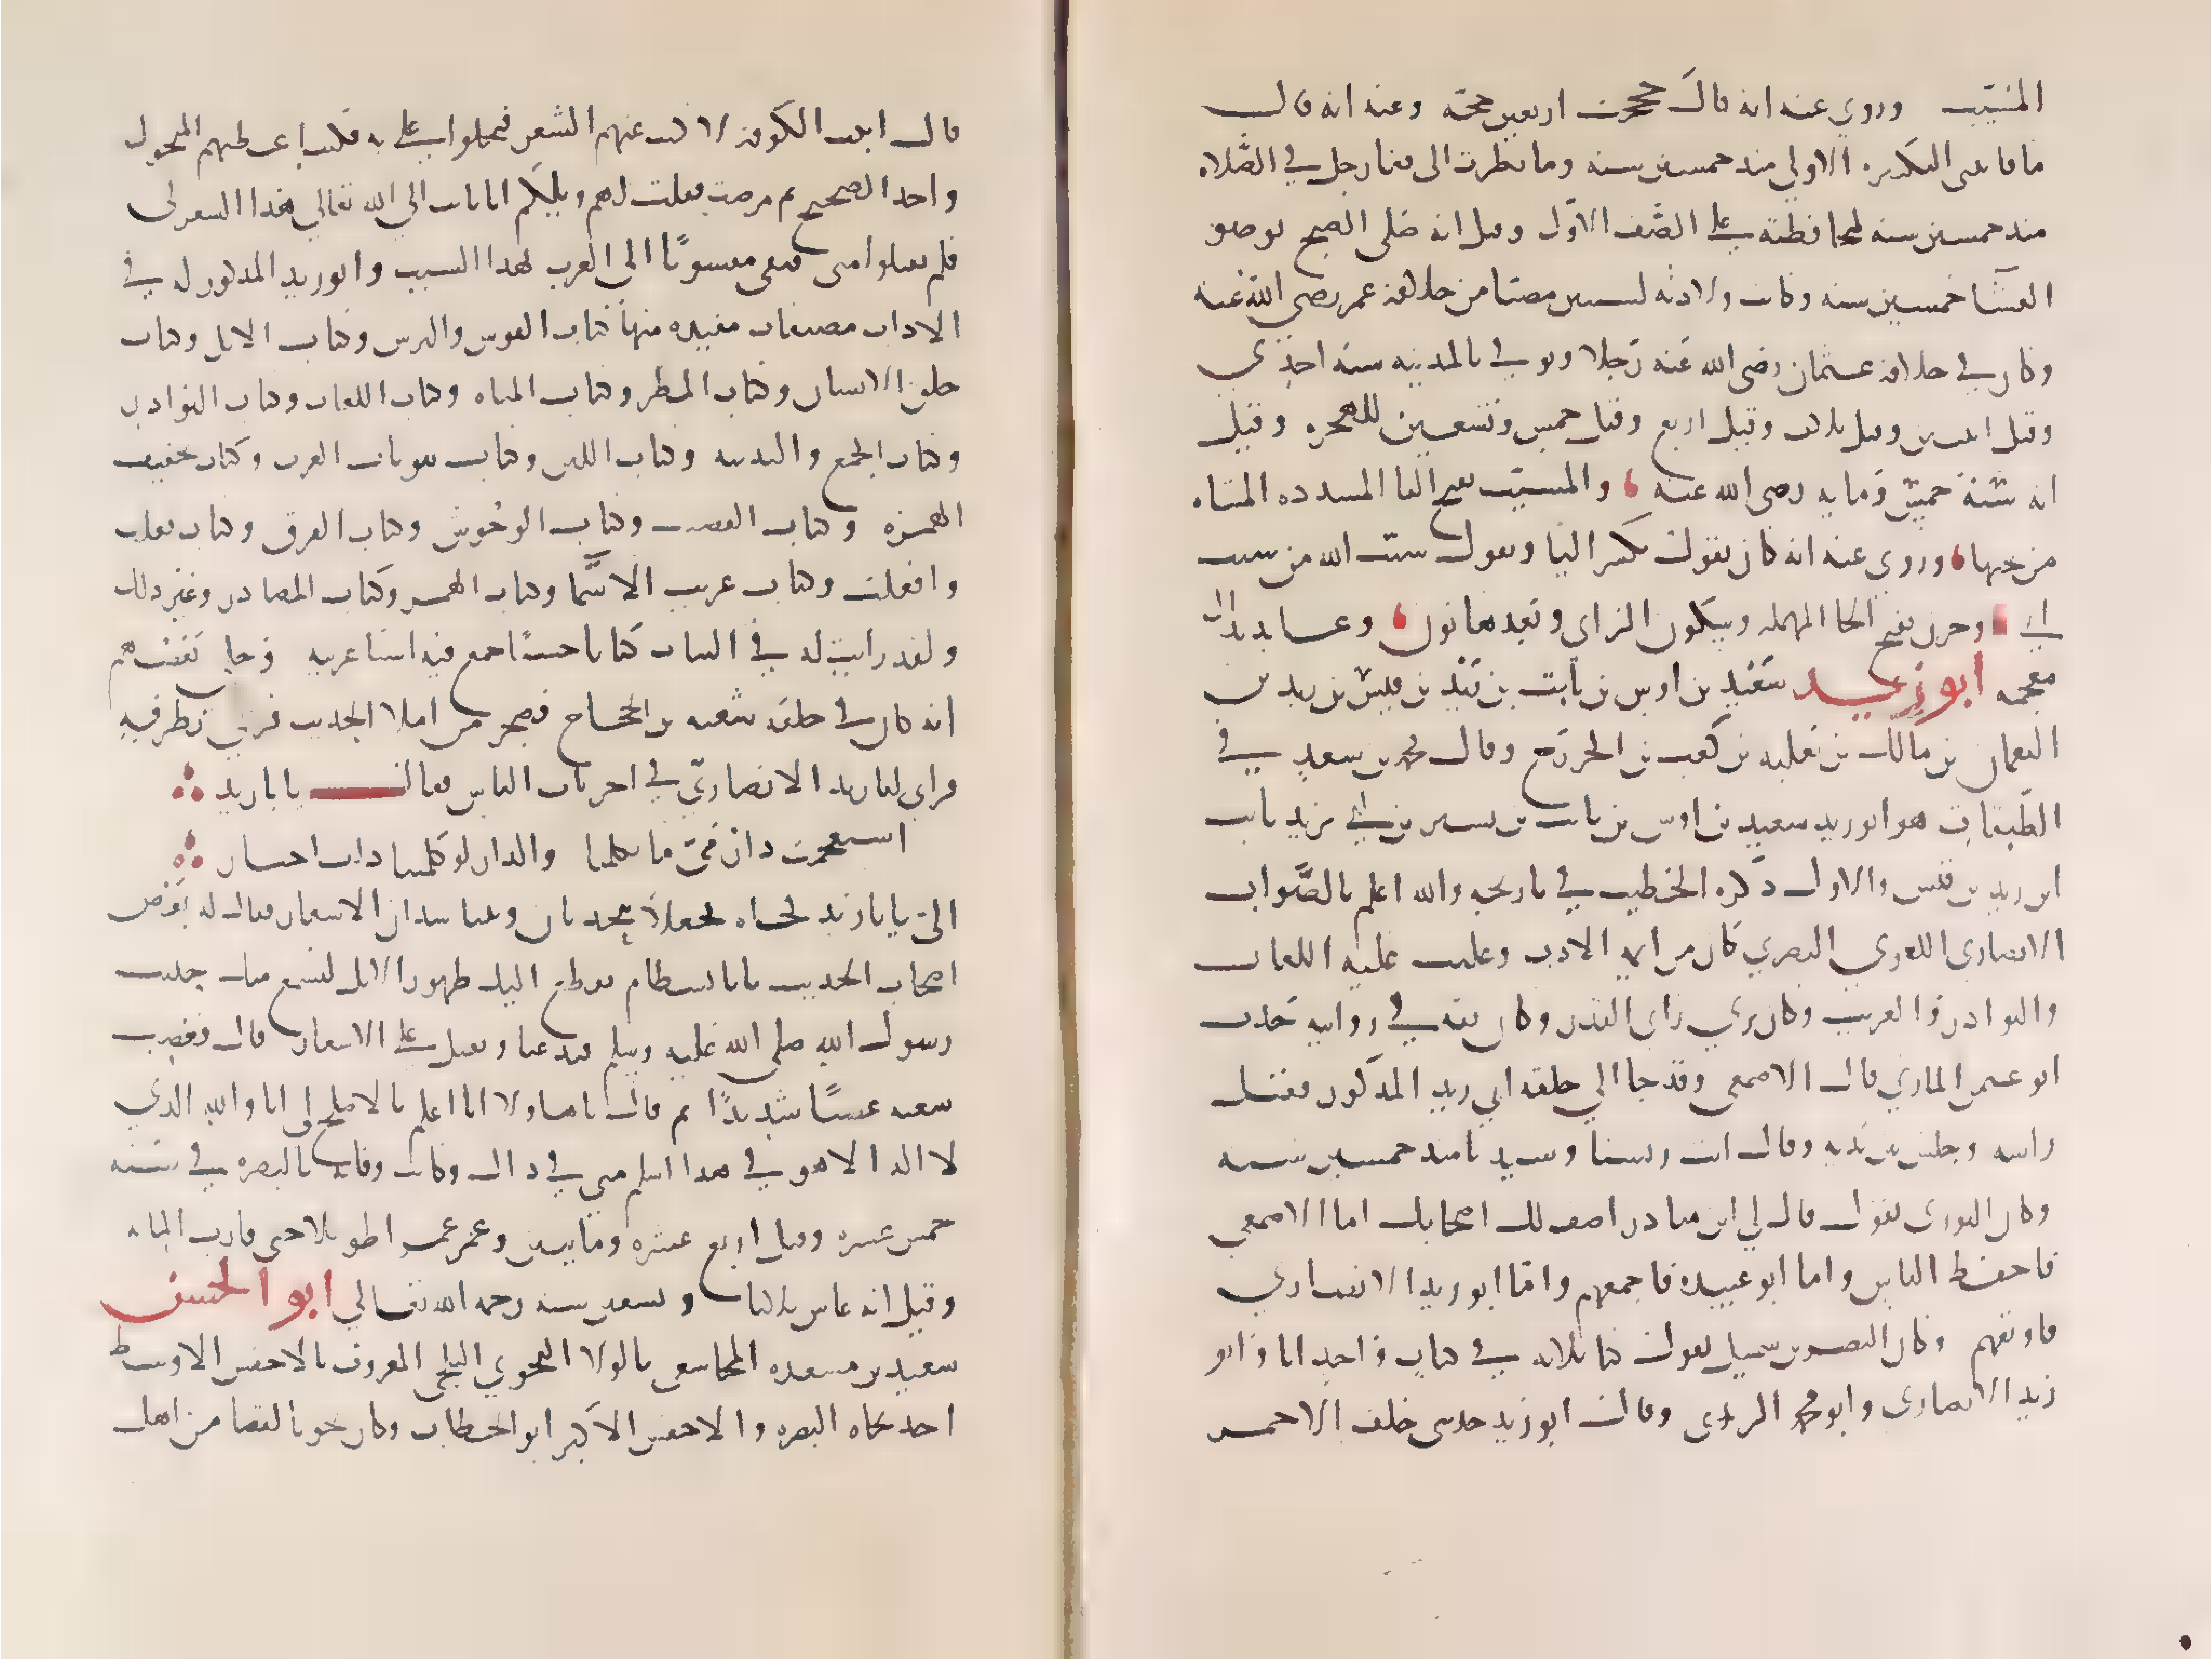 المسيب وروي عنه انه قال حججت اربعين حجة وعنه انه قال
ما فاتتني التكبيره الاولي منذ خمسين سنه وما نظرت الى قفا رجل في الصلاه
منذ خمسين سنه لمحافظته على الصف الاول وقيل انه صلى الصبح بوضو
العشا خمسين سنه وكانت ولادته لسنتين مضتا من خلافة عمر رضي الله عنه
وكان في خلافة عثمان رضي الله عنه رجلا وتوفي بالمدينه سنة احدي
وقيل اثنتين وقيل ثلاث وقيل اربع وقيل خمس وتسعين للهجره وقيل
انه سنة خمس ومايه رضي الله عنه والمسيب بفتح اليا المشدده المثناه
من تحتها وروي عنه انه كان يقول بكسر اليا ويقول سيب الله من سيب
ابي وحزن بفتح الحا المهمله وسكون الزاي وبعدها نون وعابد بدال
معجمه ابو زيد سعيد بن اوس بن ثابت بن زيد بن قيس بن زيد بن
النعمان بن مالك بن ثعلبه بن كعب بن الخزرج وقال محمد بن سعد في
الطبقات هو ابو زيد سعيد بن اوس بن ثابت بن بشير بن ابي زيد ثابت
ابن زيد بن قيس والاول ذكره الخطيب في تاريخه والله اعلم بالصواب
الانصاري اللغوي البصري كان من ايمة الادب وغلبت عليه اللغات
والنوادر والغريب وكان يري راي القدر وكان ثقه في روايته حدث
ابو عثمن المازني قال الاصمعي وقد جا الي حلقه ابي زيد المذكور فقبل
راسه وجلس بين يديه وقال انت ريسنا وسيدنا منذ خمسين سنه
وكان الثوري يقول قال لي ابن مناذر اصف لك اصحابك اما الاصمعي
فاحفظ الناس واما ابو عبيده فاجمعهم واما ابو زيد الانصاري
فاوثقهم وكان النضر بن شميل يقول كنا ثلاثه في كتاب واحد انا وابو
زيد الانصاري وابو محمد اليزيدي وقال ابو زيد حدثني خلف الاحمر
قال اتيت الكوفة لاكتب عنهم الشعر فبخلوا علي به فكنت اعطيهم المنحول
واخذ الصحيح ثم مرضت فقلت لهم ويلكم انا تايب الي الله تعالي هذا الشعر لي
فلم يقبلوا مني فبقي منسوبًا الى العرب لهذا السبب وابو زيد المذكور له في
الاداب مصنفات مفيده منها كتاب القوس والترس وكتاب الابل وكتاب
خلق الانسان وكتاب المطر وكتاب المياه وكتاب اللغات وكتاب النوادر
وكتاب الجمع والتثنيه وكتاب اللبن وكتاب بيوتات العرب وكتاب تخفيف
الهمزه وكتاب القضيب وكتاب الوحوش وكتاب الفرق وكتاب فعلت
وافعلت وكتاب غريب الاسما وكتاب الهمز وكتاب المصادر وغير ذلك
ولقد رايت له في النبات كتابا حسنًا جمع فيه اشيا غريبه وحكي بعضهم
انه كان في حلقة شعبه بن الحجاج فضجر من املا الحديث فرمي بطرفه
فراي ابا زيد الانصاري في اخريات الناس فقال يا با زيد
استعجمت دار مي ما تكلمنا والدار لو كلمتنا ذات اخبار
الي يا با زيد فجاه فجعلا يتحدثان ويتناشدان الاشعار فقال له بعض
اصحاب الحديث يا با بسطام نقطع اليك ظهور الابل لنسمع منك حديث
رسول الله صلى الله عليه وسلم فتدعنا وتقبل على الاشعار قال فغضب
شعبه غضبًا شديدًا ثم قال يا هاولا انا اعلم بالاصلح لي انا والله الذي
لا اله الا هو في هذا اسلم مني في ذاك وكانت وفاته بالبصره في سنه
خمس عشره وقيل اربع عشره ومايتين وعمر عمرا طويلا حتى قارب المايه
وقيل انه عاش ثلاثا وتسعين سنه رحمه الله تعالي ابو الحسن
سعيد بن مسعده المجاشعي بالولا النحوي البلخي المعروف بالاخفش الاوسط
احد نحاه البصره والاخفش الاكبر ابو الخطاب وكان نحويا ايضا من اهل